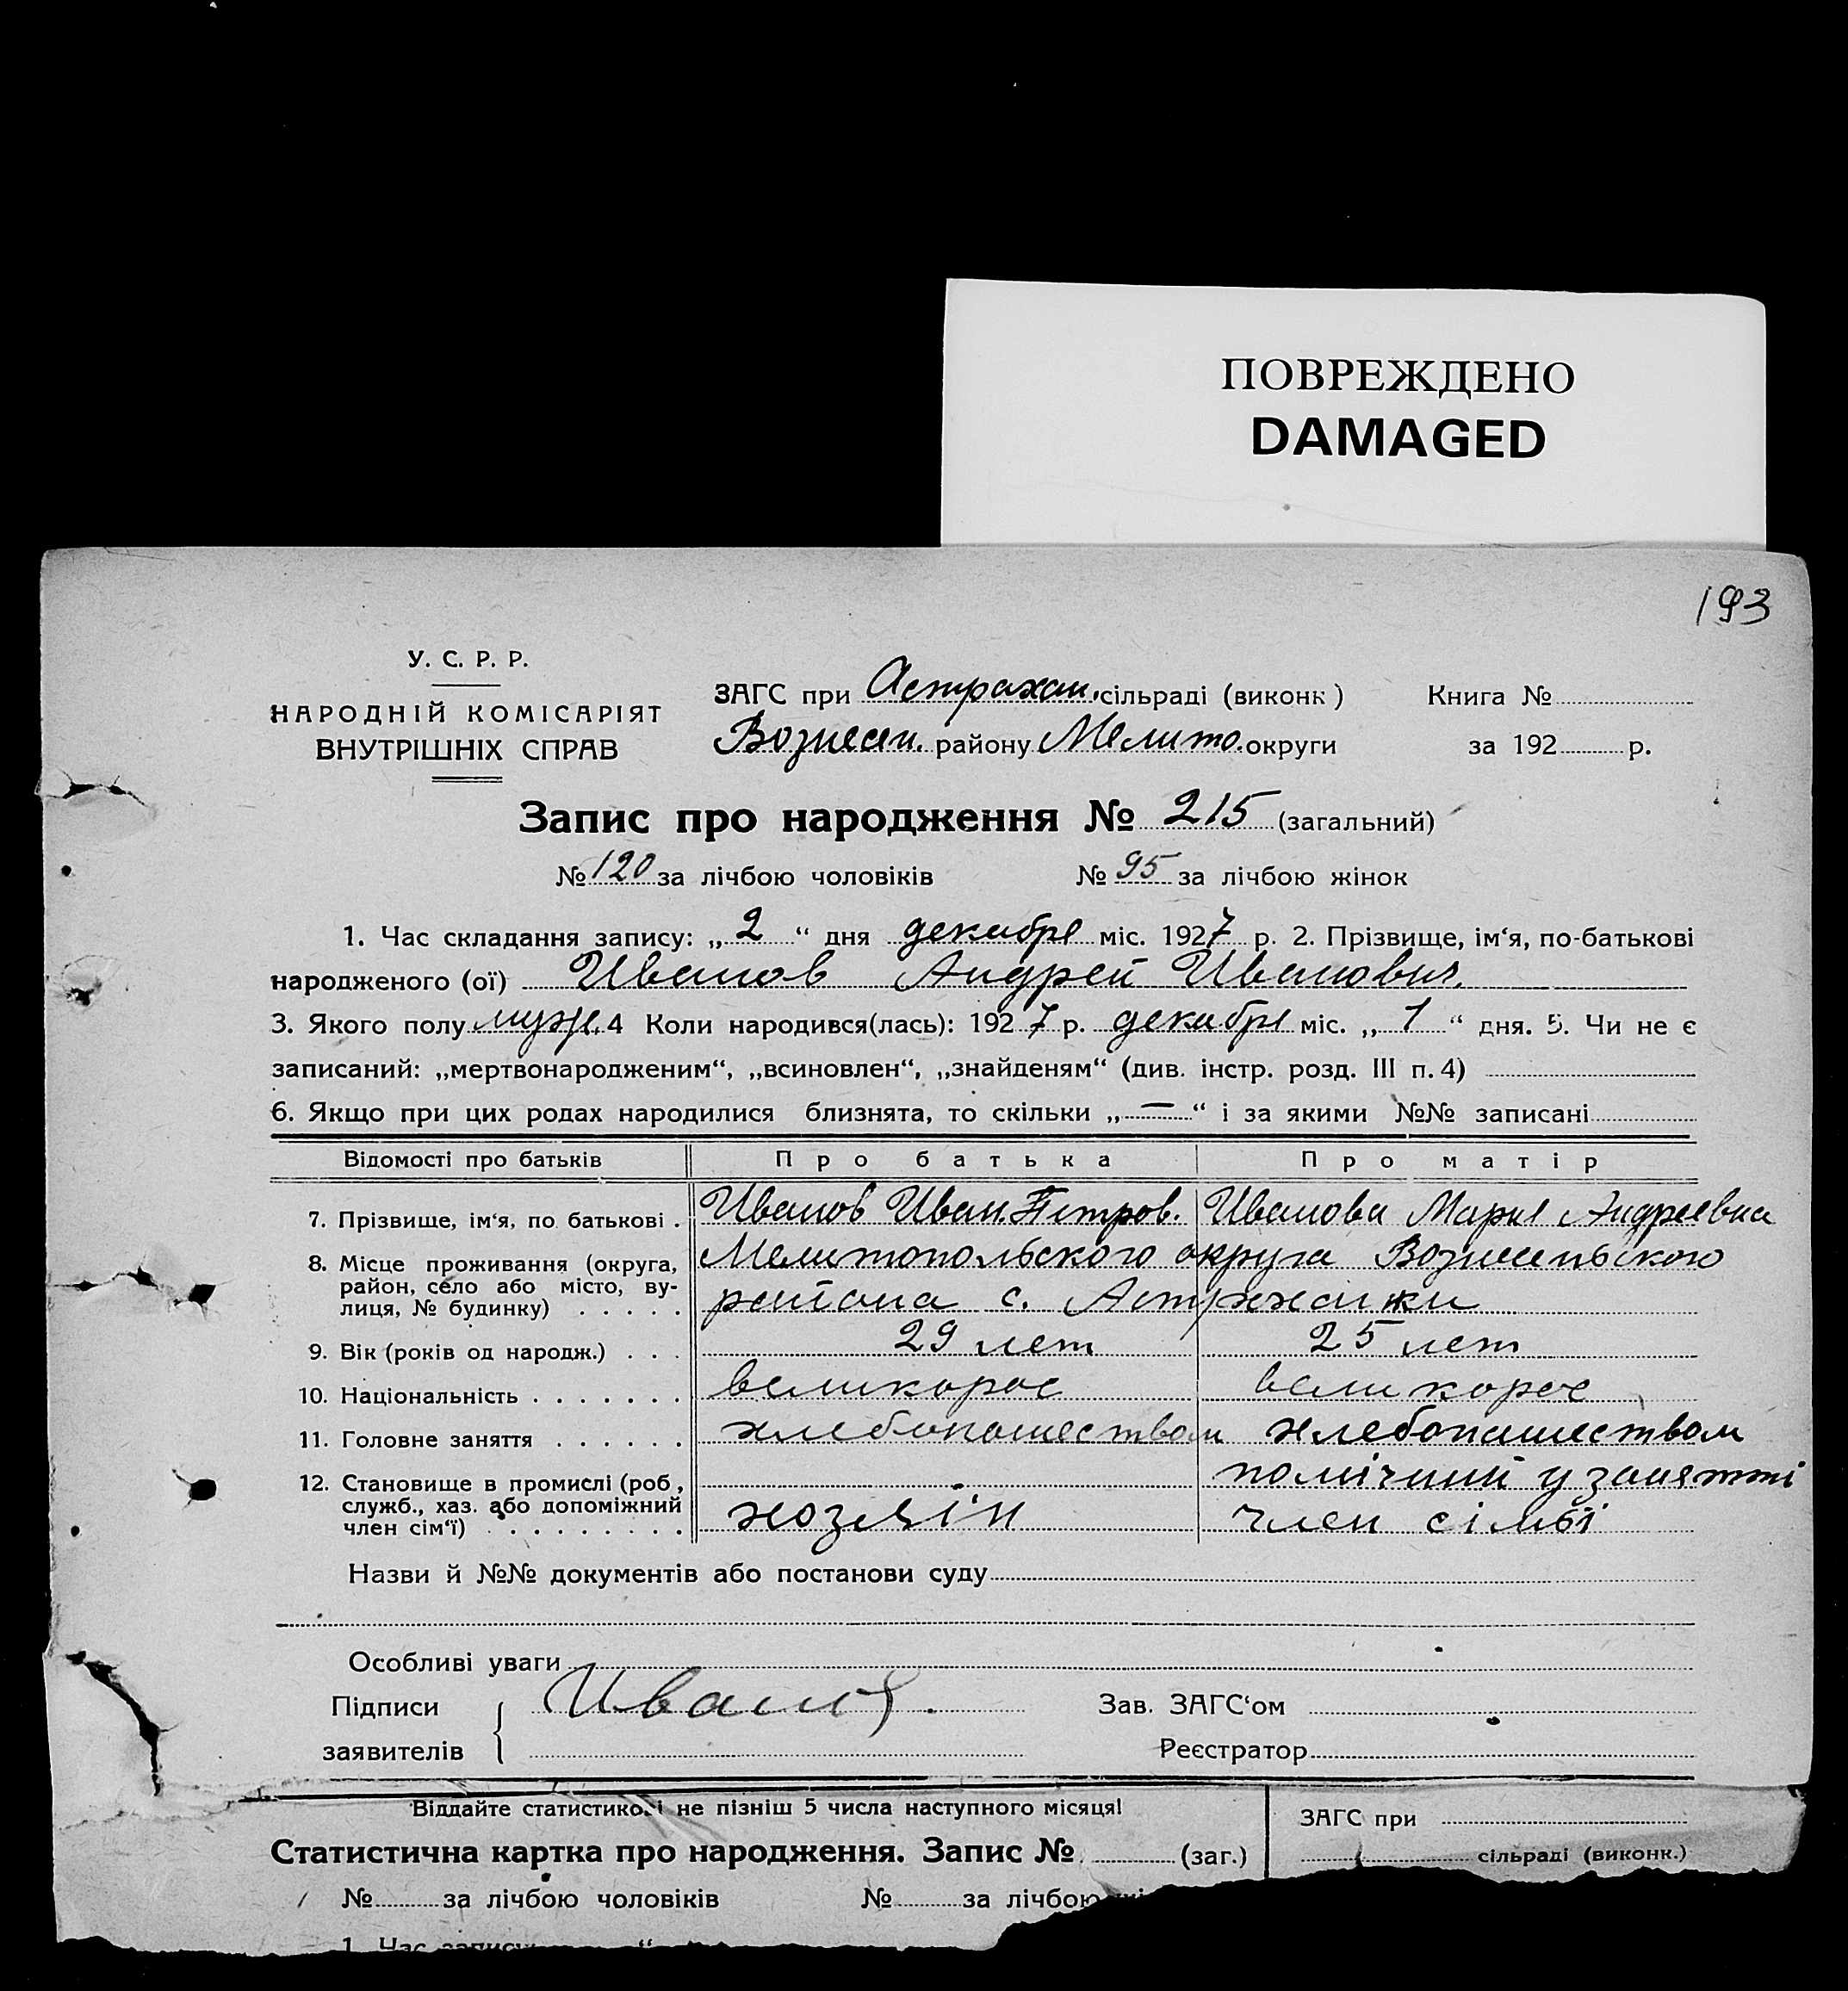 ПОВРЕЖДЕНО
DAMAGED
193
У. С. Р. Р.
НАРОДНІЙ КОМІСАРІЯТ
ВНУТРІШНІХ СПРАВ
ЗАГС при Астрахан. сільраді (виконк ) Книга №
Вознесен. району Мелито. округи за 192 р.
Запис про народження № 215 (загальний)
№ 120 за лічбою чоловіків № 95 за лічбою жінок
1. Час складання запису: „ 2 “ дня декабря міс. 1927 р. 2. Прізвище, ім‘я, по-батькові
народженого (ої) Иванов Андрей Иванович.
3. Якого полу муж. 4 Коли народився(лась): 1927 р. декабря міс. „ 1 “ дня. 5. Чи не є
записаний: „мертвонародженим“, „всиновлен“, „знайденям“ (див. інстр. розд. III п. 4)
6. Якщо при цих родах народилися близнята, то скільки „ — “ і за якими №№ записані
Відомості про батьків Про батька Про матір
7. Прізвище, ім‘я, по батькові . Иванов Иван. Петров. Иванова Мария Андреевна
8. Місце проживання (округа, Мелитопольского округа Вознесеньского
район, село або місто, ву-
лиця, № будинку) . . . . . района с. Астраханки
9. Вік (років од народж.) . . . 29 лет 25 лет
10. Національність . . . . . . . великорос великорос
11. Головне заняття . . . . . . хлебопашеством хлебопашеством
12. Становище в промислі (роб, помічний у занятті
служб., хаз. або допоміжний
член сім‘ї) . . . . . . . . . хозяін член сімьі
Назви й №№ документів або постанови суду
Особливі уваги
Підписи Иванов. Зав. ЗАГС‘ом
заявителів Реєстратор
Віддайте статистикові не пізніш 5 числа наступного місяця!
ЗАГС при
Статистична картка про народження. Запис № (заг.)
сільраді (виконк.)
№ за лічбою чоловіків № за лічбою
1. Час запису “